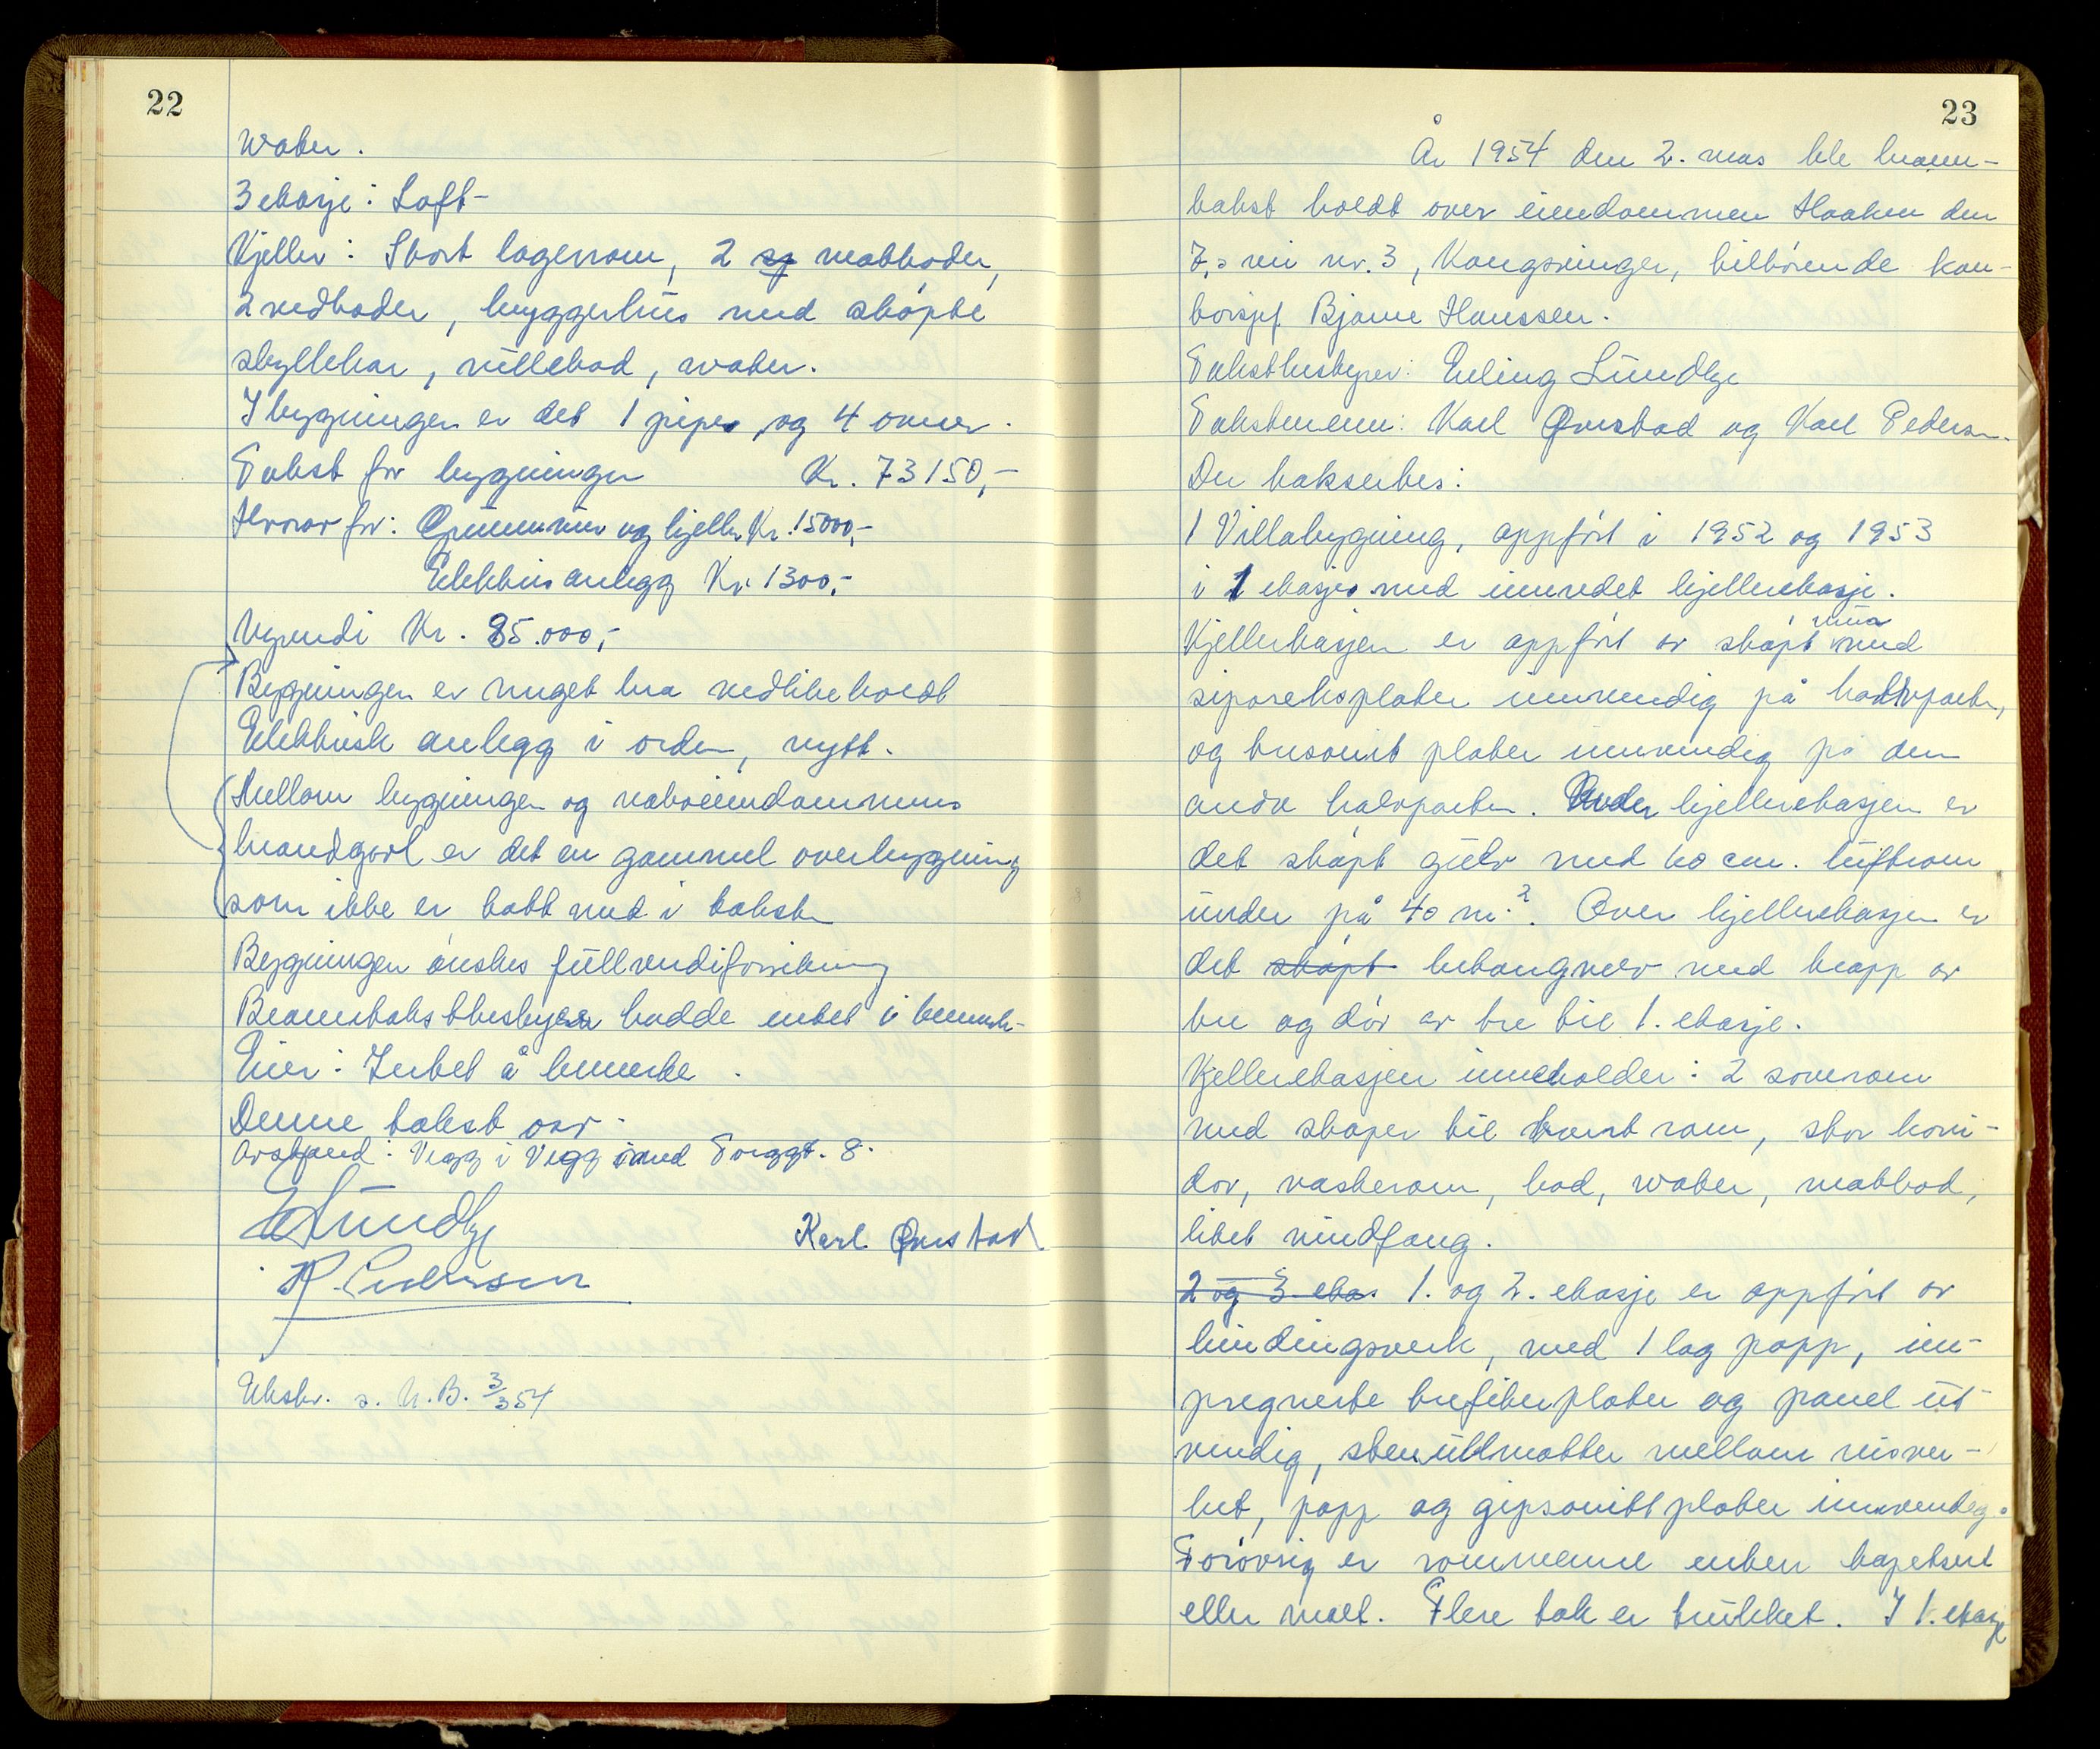 22
water.
3 etasje: Loft-
Kjeller: Stort lagerrom, 2 matboder,
2 vedboder, bryggerhus med støpte
skyllekar, rullebod, water.
I bygningen er det 1 pipe, og 4 ovner.
Takst for bygningen Kr. 73150,-
Hvorav for: Grunnmur og kjeller Kr. 15000,-
Elektrisanlegg Kr. 1300,-
Nyverdi Kr. 85.000,-
Bygningen er meget bra vedlikeholdt
Elektrisk anlegg i orden, nytt.
Mellom bygningen og naboeiendommens
brandgavl er det en gammel overbygning
som ikke er tatt med i taksten
Bygningen ønskes fullverdiforsikring
Branntakstbestyrer hadde intet å bemerke-
Eier: Intet å bemerke.
Denne takst avr.
Avstand: Vegg i Vegg med Torggt. 8.
E Lundby
Karl Qvistad
K. Pedersen
Utskr. s. N.B. 3/3 54
23
År 1954 den 2. mars ble brann-
takst holdt over eiendommen Haakon den
7.s vei nr. 3, Kongsvinger, tilhörende kon-
torsjef Bjarne Hanssen.
Takstbestyrer: Erling Lundby
Takstmenn: Karl Qvistad og Karl Pedersen.
Der takserbes:
1 Villabygning, oppfört i 1952 og 1953
i 1 etasje med innredet kjelleretasje.
Kjelleretasjen er oppfört av støpt mur med
siporeksplater innvendig på halvparten,
og tresonit plater innvendig på den
andre halvparten. Under kjelleretasjen er
det støpt gulv med 40 cm. luftrom
under på 40 m.². Over kjelleretasjen er
det støpt betongvelv med trapp av
tre og dör av tre til 1. etasje.
Kjelleretasjen inneholder: 2 soverom
med skaper til hvert rom, stor korri-
dor, vaskerom, bad, water, matbod,
litet vindfang.
2 og 3 etas 1. og 2. etasje er oppfört av
bindingsverk, med 1 lag papp, im-
pregnerte trefiberplater og panel ut
vendig, stenullmatter mellom reisver-
ket, papp og gipsonittplater innvendig.
Forövrig er rommene enten tapetsert
eller malt. Flere tak er trukket. I 1. etasje